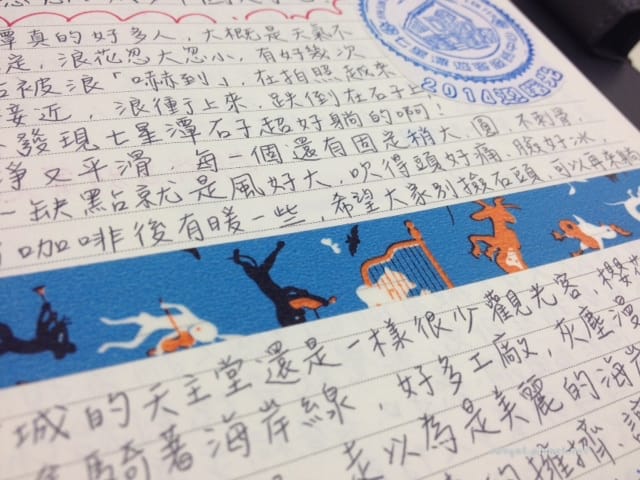 潭真的好多人,大概是天氣不
定,浪花忽大忽小,有好幾次
被浪「嚇到」,在拍照越來
接近,浪衝上來,跌倒在石子上
發現七星潭石子超好躺的啊!
淨又平滑,每一個還有固定稍大,圓,不刺骨,
一缺點就是風好大,吹得頭好痛,臉好冰,
咖啡後有暖一些,希望大家別撿石頭,可以再來
2014
城的天主堂還是一樣很少觀光客,櫻
騎著海岸線,好多工廠,灰塵漫
以為是美麗的海岸
的擁擠